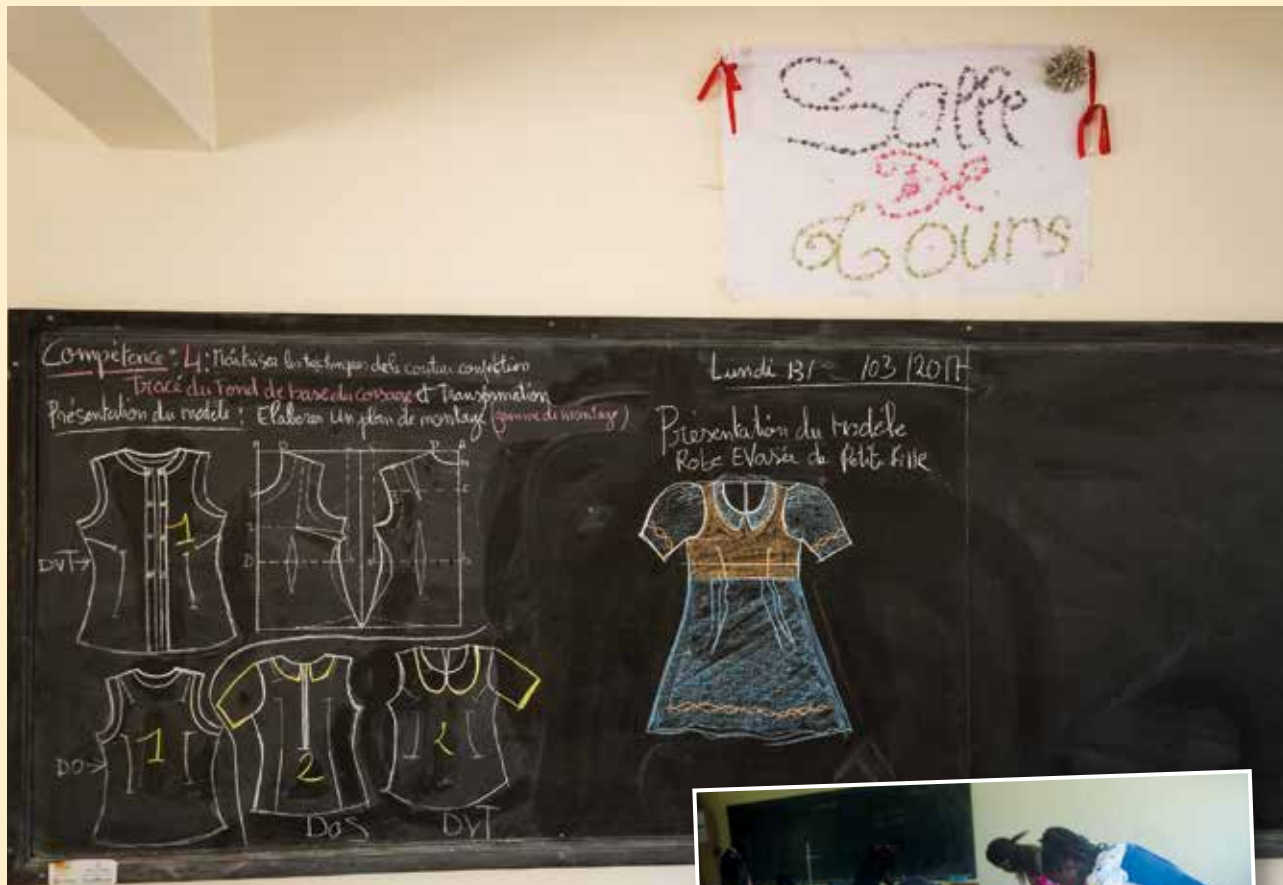 Salle
De
Cours
Compétence : 4 : Maîtriser les techniques de la couture confection
Tracé du Fond de base du corsage et Transformation
Présentation du modèle : Elaborer un plan de montage (gamme de montage)
Lundi 13/ /03/2017
Présentation du Modèle
Robe Evasée de Petite Fille
DVT
1
D
DO
1
2
2
DOS
DVT